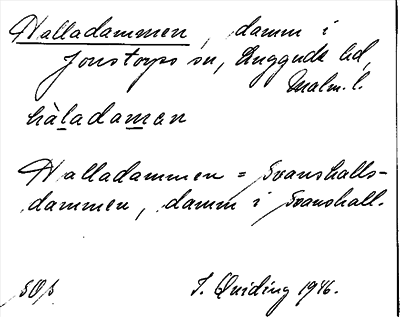 Halladammen, damm i
Jonstorps sn, Luggude hd,
Malm. l.
hàladamen
Halladammen = Svanshalls-
dammen, damm i Svanshall.
SOS
I. Quiding 1946.